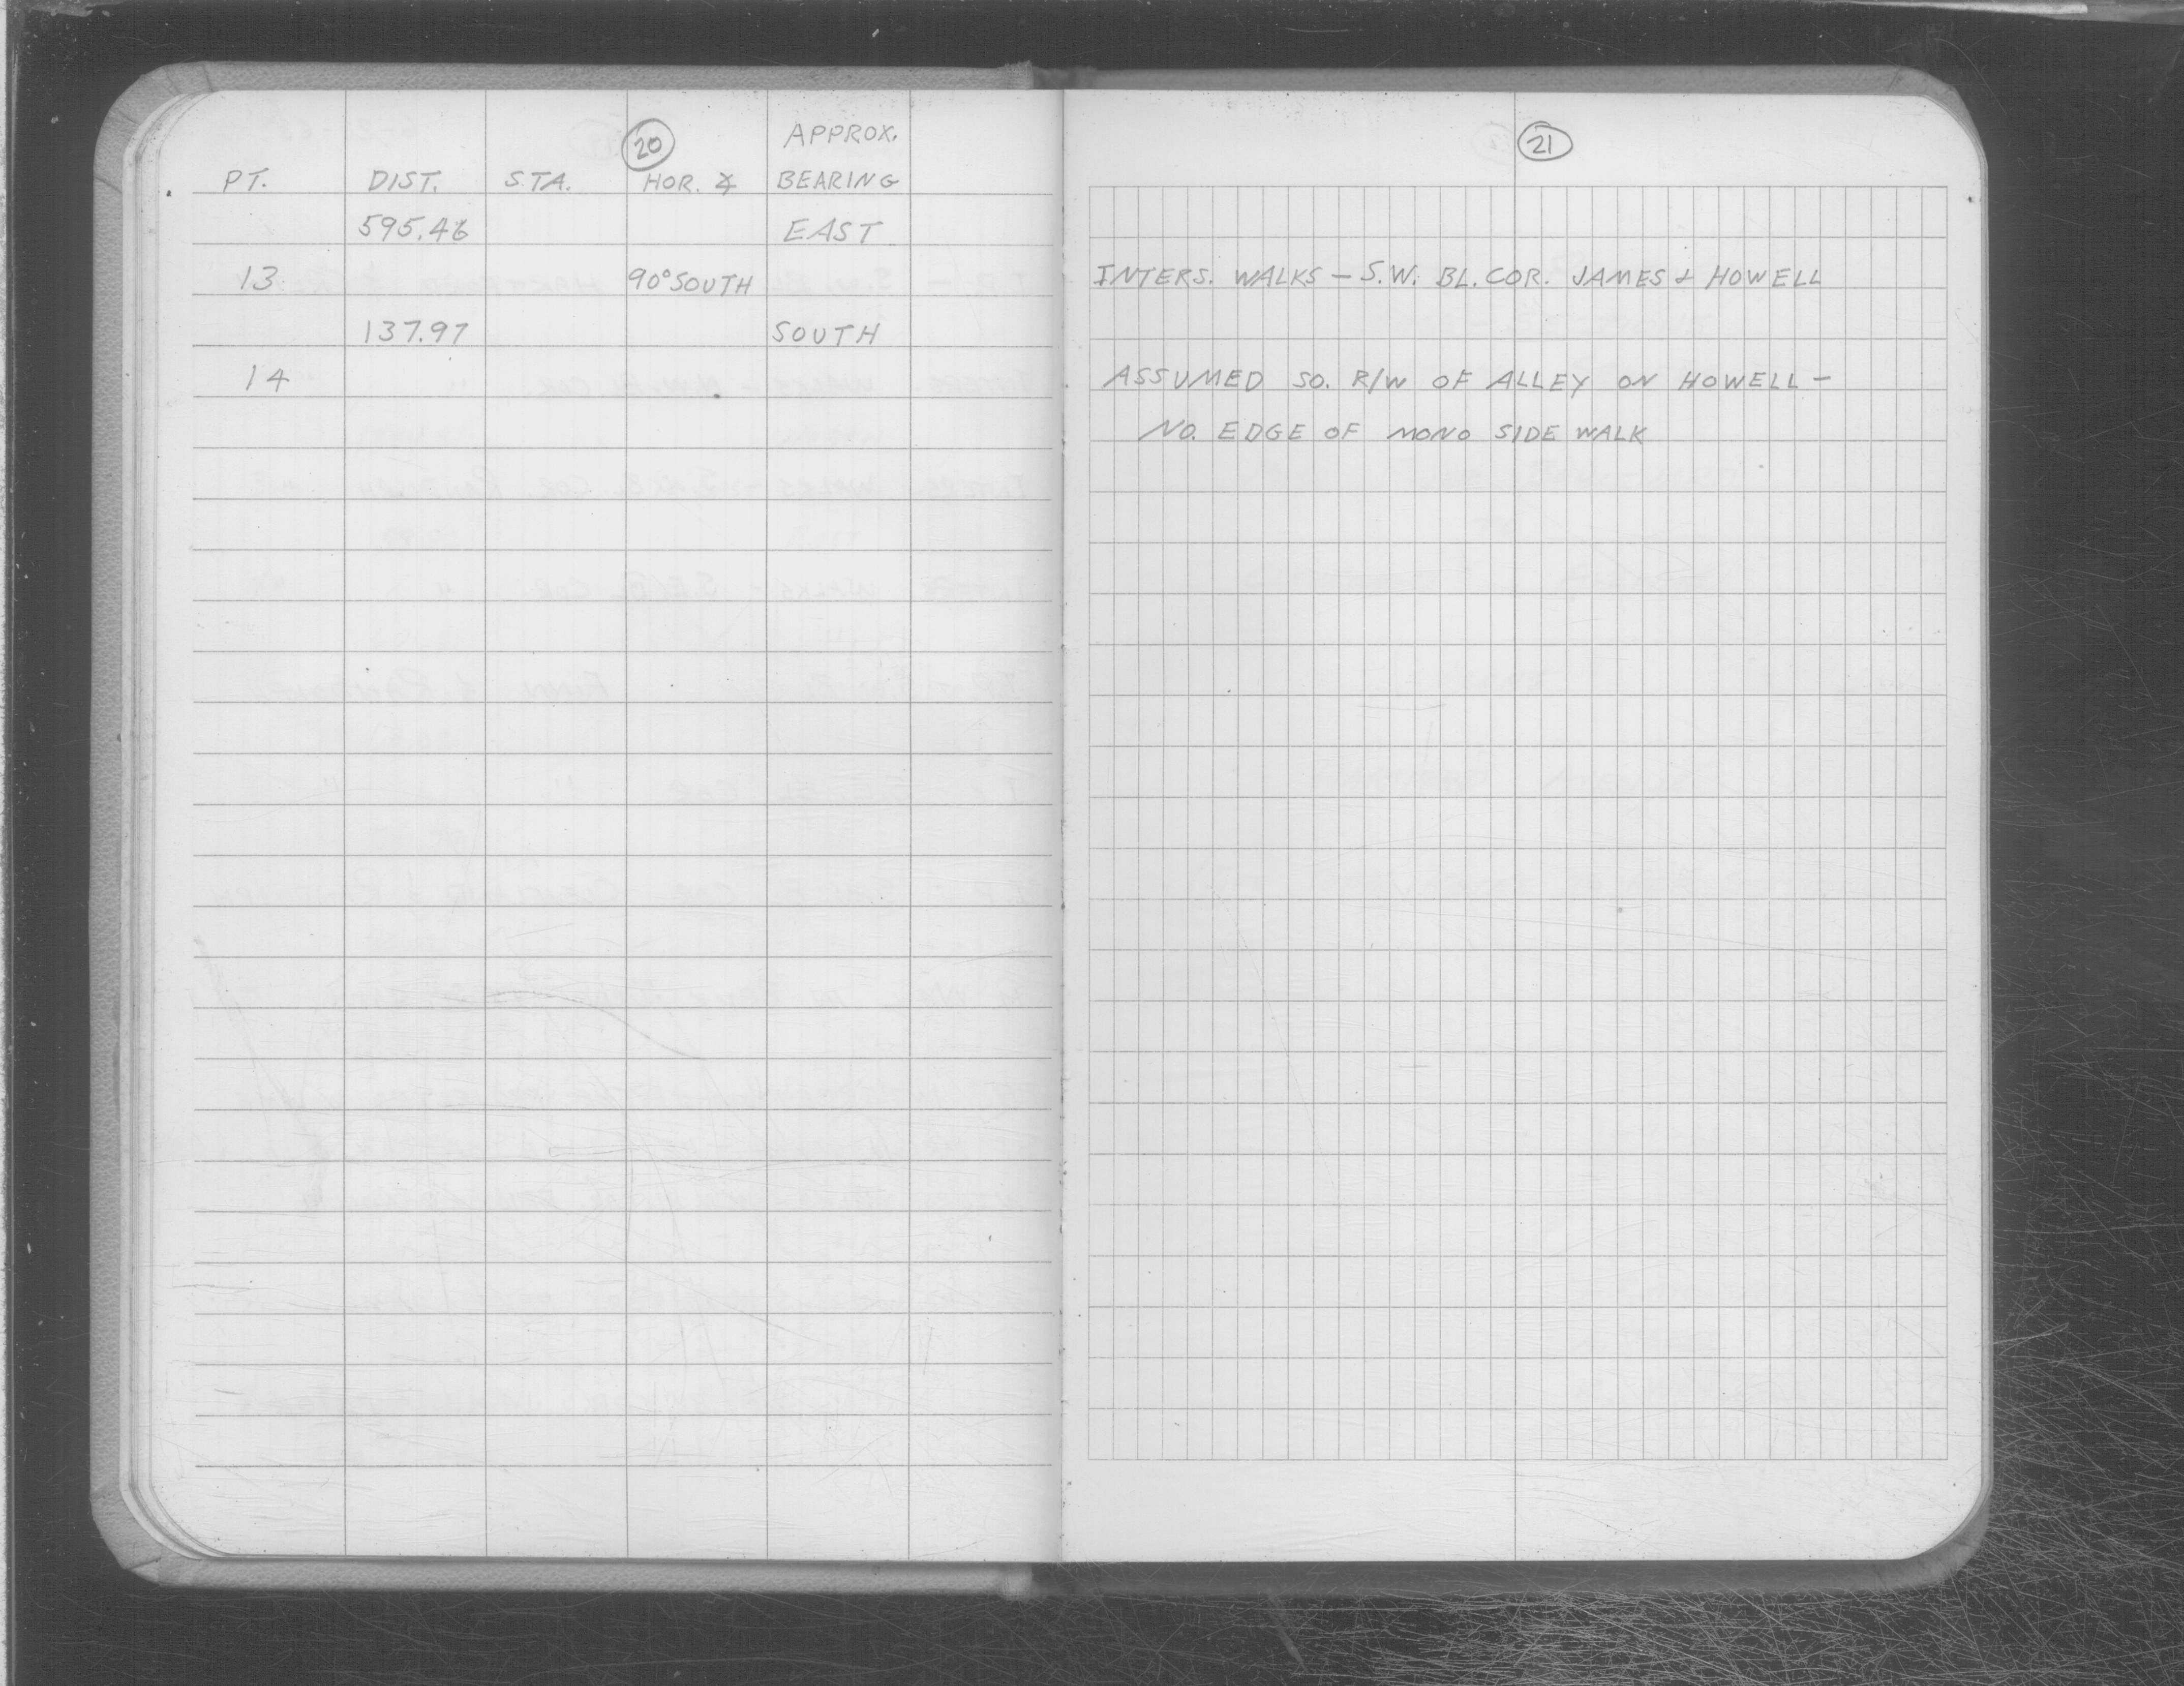 20
APPROX.
PT. DIST. STA. HOR. ∡ BEARING
595.46 EAST
13 90° SOUTH
137.97 SOUTH
14
21
INTERS. WALKS — S.W. BL. COR. JAMES & HOWELL
ASSUMED SO. R/W OF ALLEY ON HOWELL —
NO. EDGE OF MONO SIDE WALK